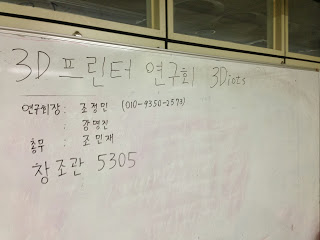 3D프린터 연구회 3Diots
연구회장 : 조정민 (010-9350-2573)
: 강명진
총무 : 조민재
창조관 5305